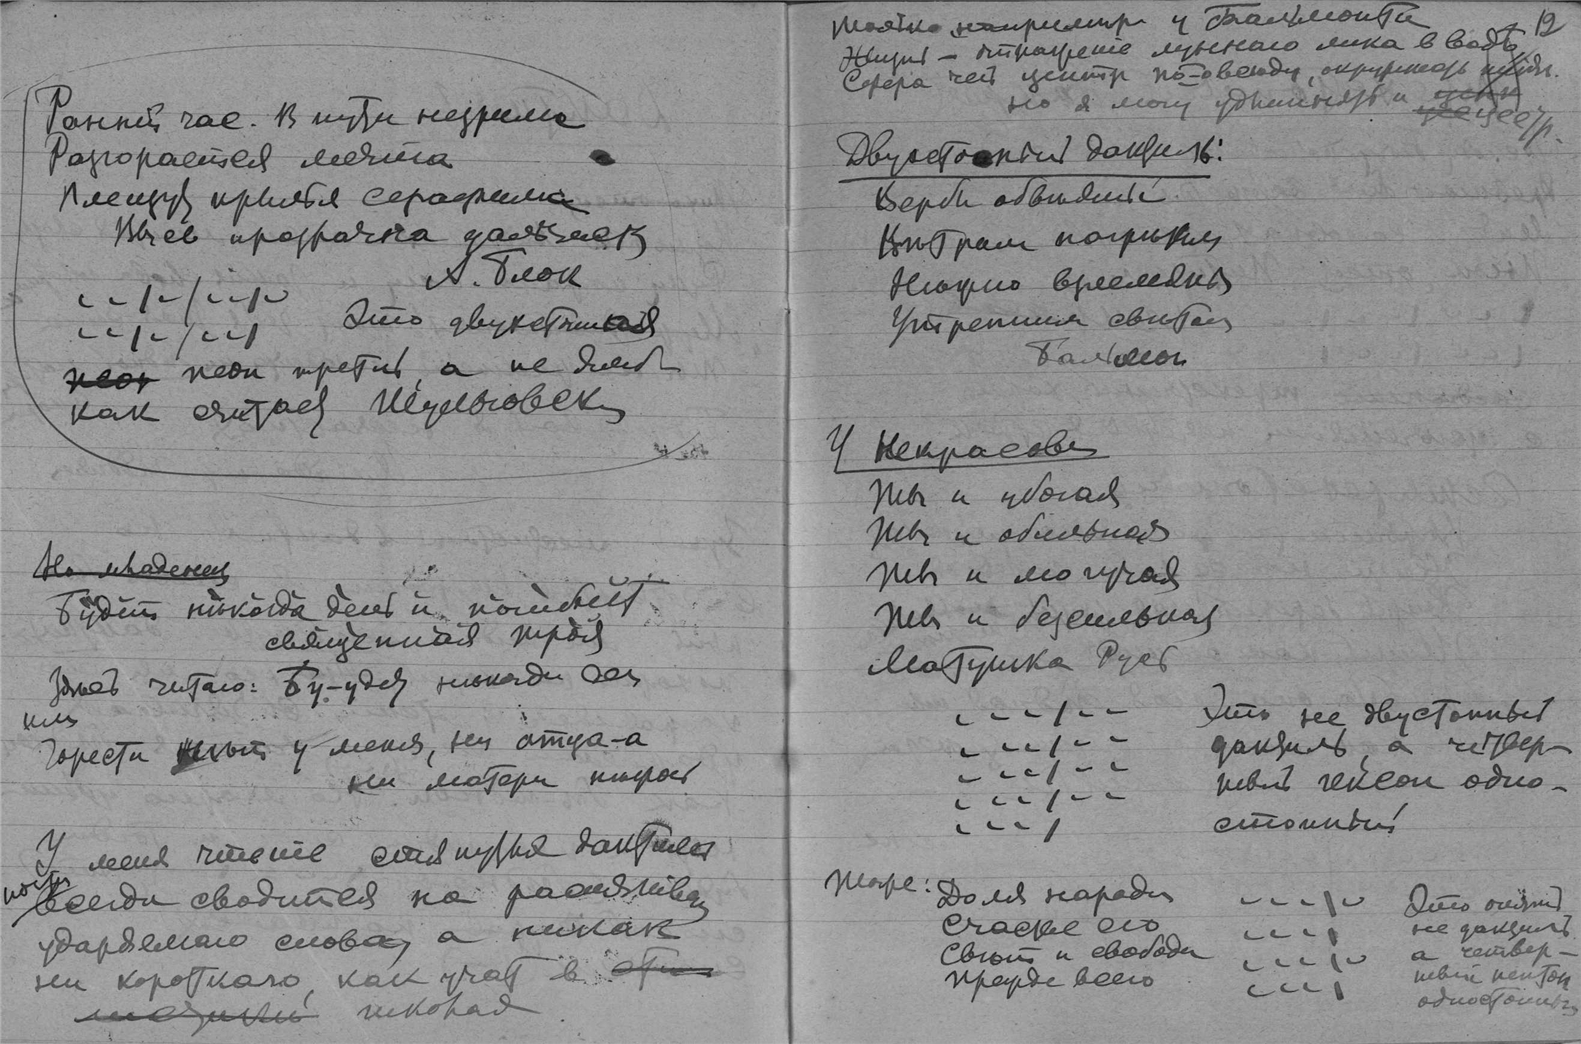 Ранний час. В пути незрима
Разгорается мечта
Плещут крылья серафима
Высь прозрачна даль чиста
А. Блок
Это двухстопный
пеон третий, а не ямб
как считает Шульговский
На младенец
Будет никогда день и погибнет
священная Троя
Здесь читаю: Бу-удет никогда день
или
Горести у меня, ни отца-а
ни матери нежной
У меня чтение стянутых дактилей
почти всегда сводится на растяжение
ударяемого слова, а никак
ни короткаго, как учат в
школах
12
Только например у Бальмонта
Жизнь – отражение луннаго лика в воде
Сфера чей центр повсюду, окружность нигде.
но я могу удлинять и
Двухстопный дактиль:
Вербы овеяны
Ветром нагретым
Нежно взлелеяны
Утренним светом
Бальмон
У Некрасова
Ты и убогая
Ты и обильная
Ты и могучая
Ты и безсильная
Матушка Русь
Это не двустопный
дактиль, а четвер-
тый одно-
стопный
Тоже:
Доля народа
Счастье его
Свет и свобода
Прежде всего
Это опять
не дактиль
а четвер-
тый пентон
одностопный